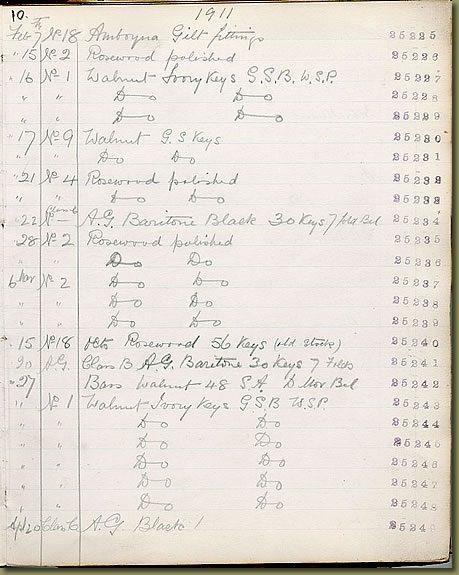 10. 1911
Feb 7th No 18 Amboyna Gilt fittings 25225
" 15 No 2 Rosewood polished 25226
" 16 No 1 Walnut Ivory Keys G.S.B. W.S.P. 25227
" " Do Do 25228
" " Do Do 25229
" 17 No 9 Walnut G.S Keys 25230
" " Do Do 25231
" 21 No 4 Rosewood polished 25232
" " Do Do 25233
" 22 Class C No — A.G. Baritone Black 30 Keys 7 fold Bel 25234
" 28 No 2 Rosewood polished 25235
" " Do Do 25236
6 Mar No 2 Do Do 25237
" " Do Do 25238
" " Do Do 25239
" 15 No 18 8cts Rosewood 56 Keys (old Stock) 25240
20 A.G. Class B A.G. Baritone 30 Keys 7 Folds 25241
" 27 Bass Walnut 48 S.A Bel 25242
" No 1 Walnut Ivory Keys G.S.B W.S.P. 25243
" " Do Do 25244
" " Do Do 25245
" " Do Do 25246
" " Do Do 25247
" " Do Do 25248
Apl 20 Class C A.G. Black 25249